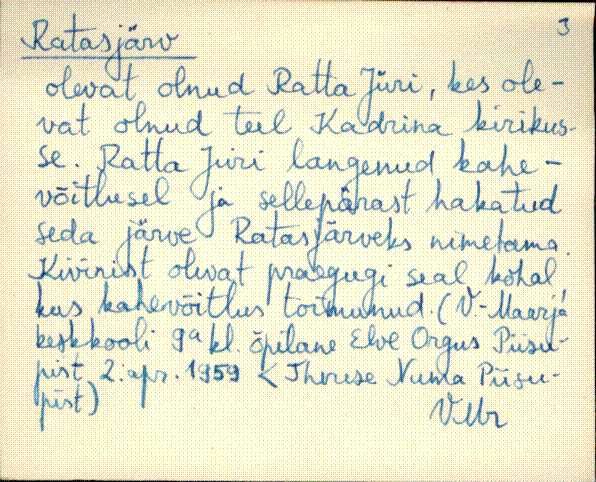 3
Ratasjärv
olevat olnud Ratta Jüri, kes ole-
vat olnud teel Kadrina kirikus-
se. Ratta Jüri langenud kahe-
võitlusel ja sellepärast hakatud
seda järve Ratasjärveks nimetama.
Kivirist olevat praegugi seal kohal
kus kahevõitlus toimunud. (V-Maarja
keskkooli 9a kl. õpilane Elve Orgus Piisu-
pist 2. apr. 1959 < Therese Numa Piisu-
pist)